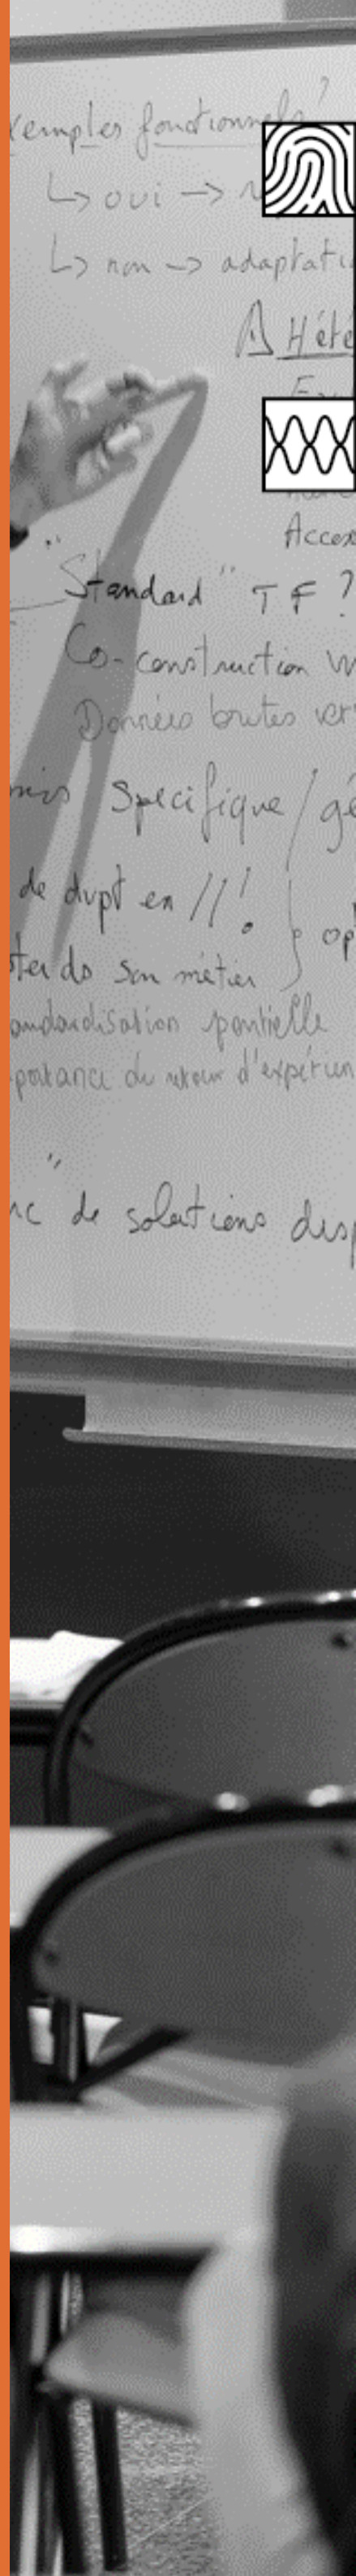 xemples fonctionnels ?
↳ oui →
↳ non → adaptati
⚠ Hété
Acces
"Standard" TF ?
Co-construction
Données brutes ver
Spécifique / gé
de dvpt en // ! } op
ter do son métier
andardisation partielle
portance du retour d'expérien
"
nc de solutions disp